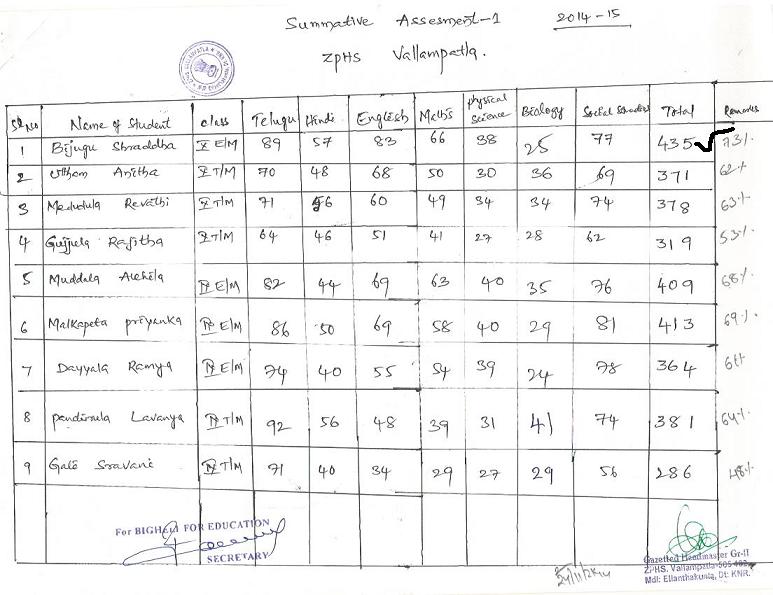 Summative Assesment-1 2014-15
ZPHS Vallampatla.
Sl No Name of Student class Telugu Hindi English Maths physical science Biology Social Studies Total Remarks
1 Bijugu Shraddha X E/M 89 57 83 66 38 25 77 435 73%
2 Utham Anitha X T/M 70 48 68 50 30 36 69 371 62%
3 Medudula Revathi X T/M 71 56 60 49 34 34 74 378 63%
4 Gujjula Rajitha X T/M 64 46 51 41 27 28 62 319 53%
5 Muddala Akhila IX E/M 82 44 69 63 40 35 76 409 68%
6 Malkapeta priyanka IX E/M 86 50 69 58 40 29 81 413 69%
7 Dayyala Ramya IX E/M 74 40 55 54 39 24 78 364 61%
8 Lavanya IX T/M 92 56 48 39 31 41 74 381 64%
9 Sravani IX T/M 71 40 34 29 27 29 56 286 48%
For BIGHELP FOR EDUCATION
SECRETARY
Gazetted Headmaster Gr-II
ZPHS. Vallampatla-505 402
Mdl: Ellanthakunta, Dt: KNR.